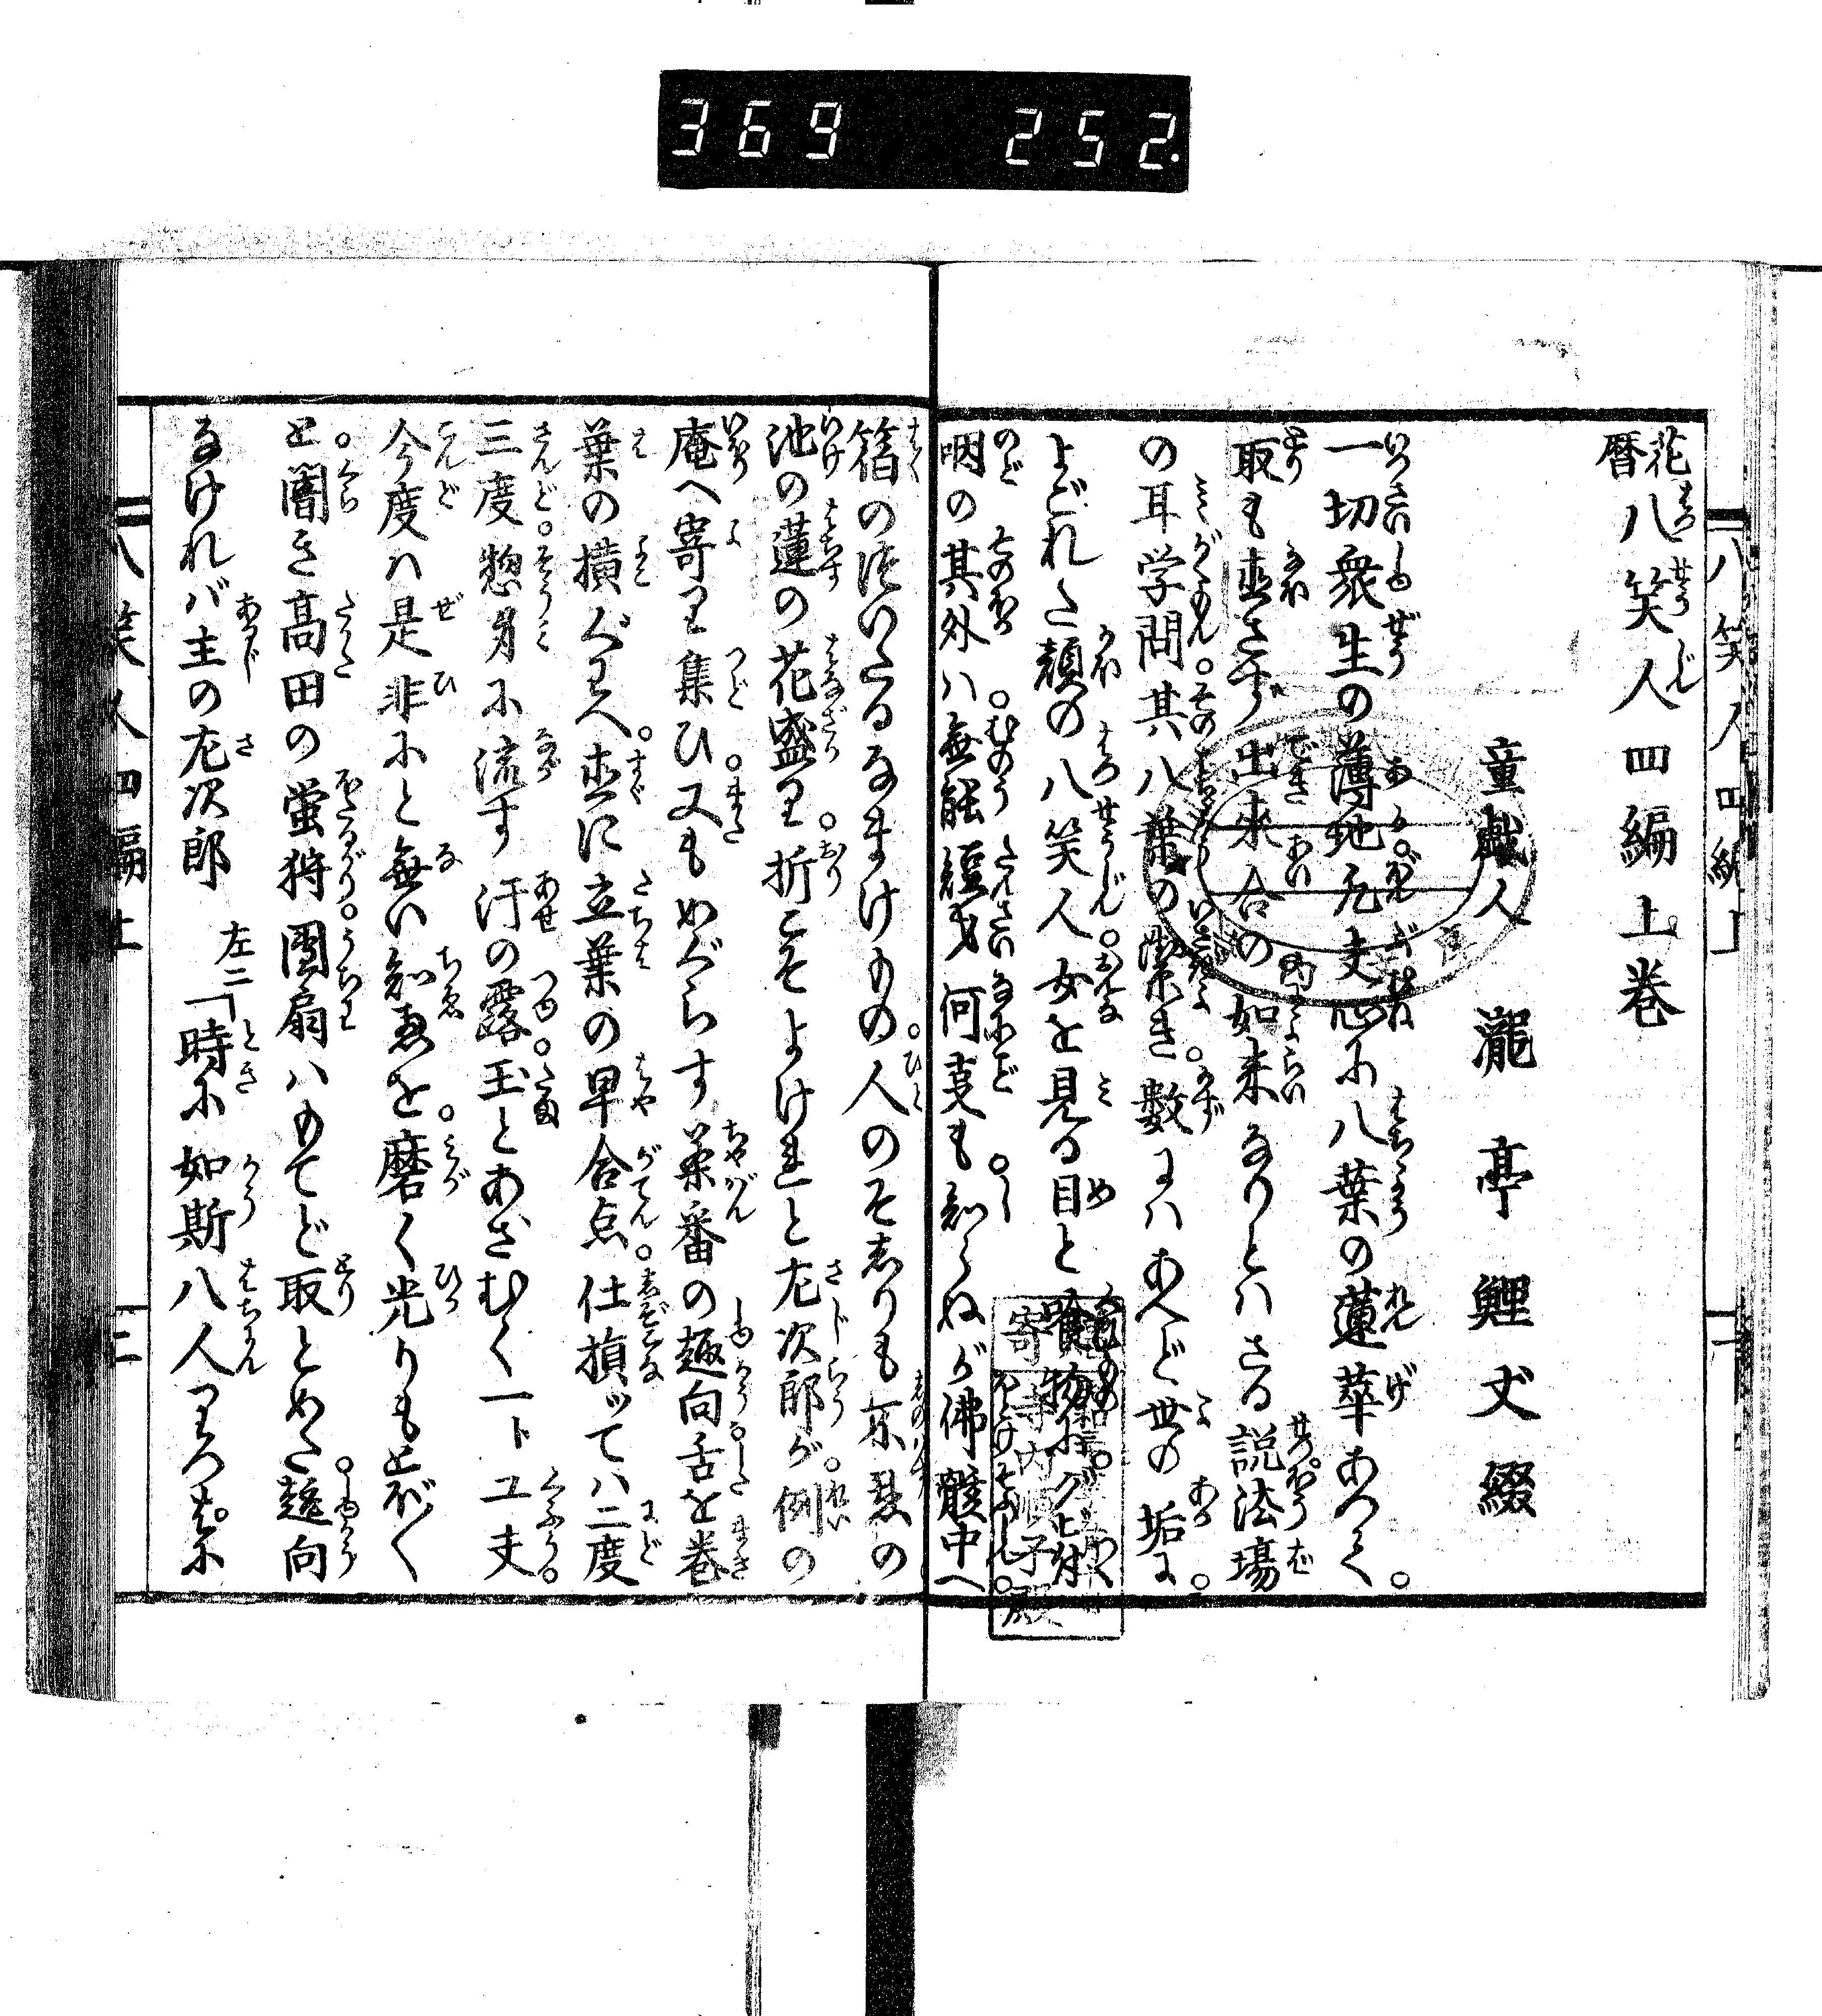 369 252.
花暦八笑人四編上巻
童戯人 瀧亭鯉丈綴
一切衆生の薄地凡夫心に八葉の蓮華あつて
取も直さず出来合の如来なりとハさる説法場
の耳学問其八葉の潔き数にハあへど世の垢に
よごれた顔の八笑人女を見る目と喰物を
咽の其外ハ無能短才何事も知らねが佛髄中へ
箔のつひたるなまけものゝ人のそしりも不忍の
池の蓮の花盛り折こそよけれと左次郎が例の
庵へ寄り集ひ又もめぐらす茶番の趣向舌を巻
葉の横ぐはへ直に立葉の早合点仕損ッてハ二度
三度惣身に流す汗の露玉とあざむく一ト工夫
今度ハ是非にと無い知恵を磨く光りも
と闇き高田の蛍狩團扇ハもてど取とめた趣向
なけれバ主の左次郎 左二「時に如斯八人
八笑人四編上